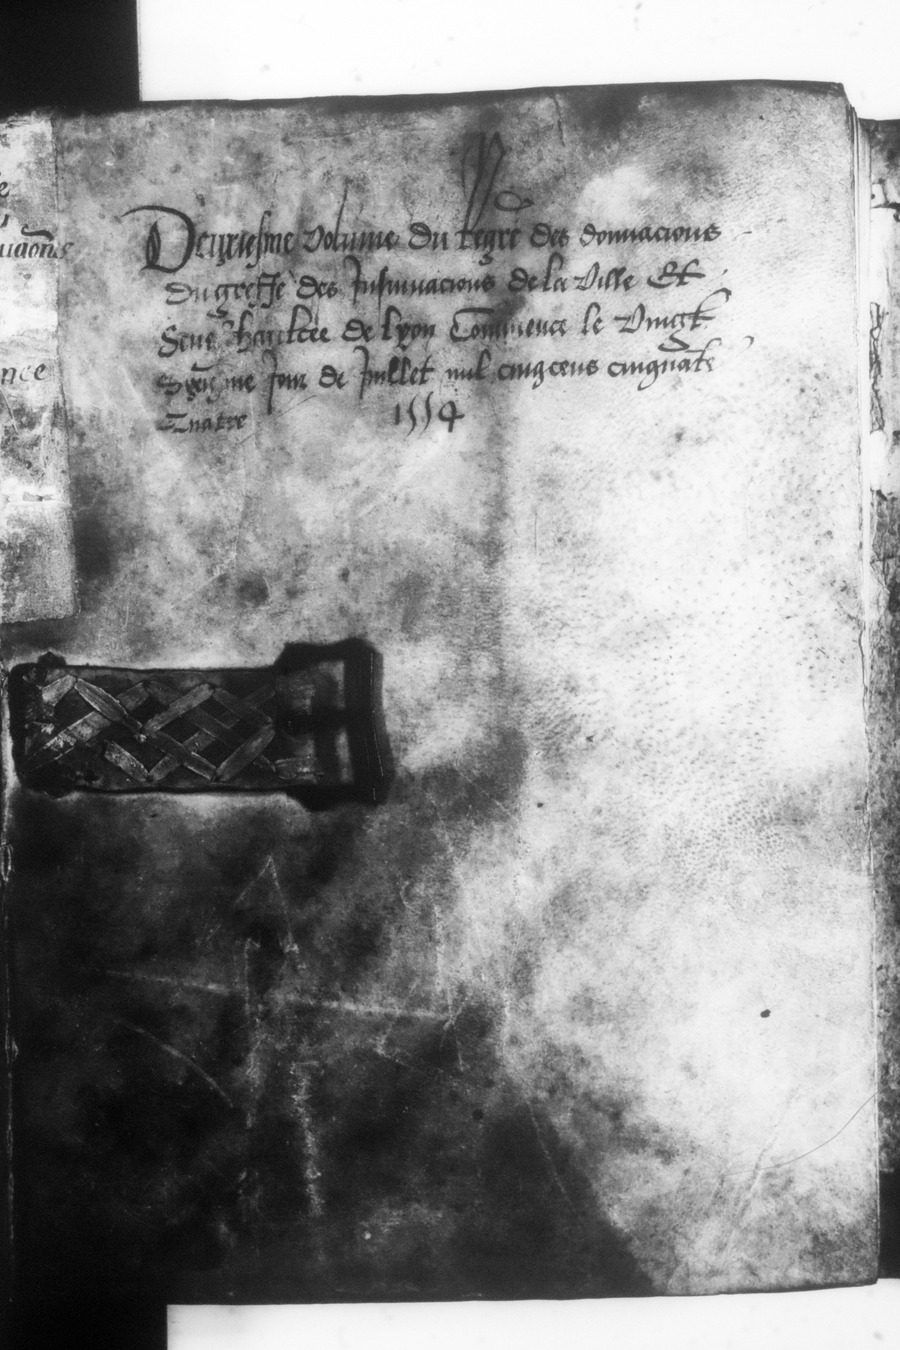 Deuxiesme volume du regre des donnacions
du greffe des Insinuacions de la Ville Et
Seneschaulcee de Lyon Commence le Vingt
Jour de Juillet mil cinqcens cinquante
Quatre 1554
nce